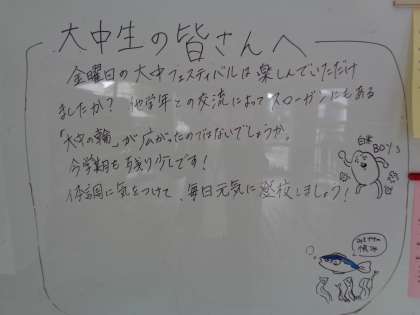 大中生の皆さんへ
金曜日の大中フェスティバルは楽しんでいただけ
ましたか？他学年との交流によってスローガンにもある
「大中の輪」が広がったのではないでしょうか。
今学期も残り少しです！
体調に気をつけて、毎日元気に登校しましょう！
白米
BOYS